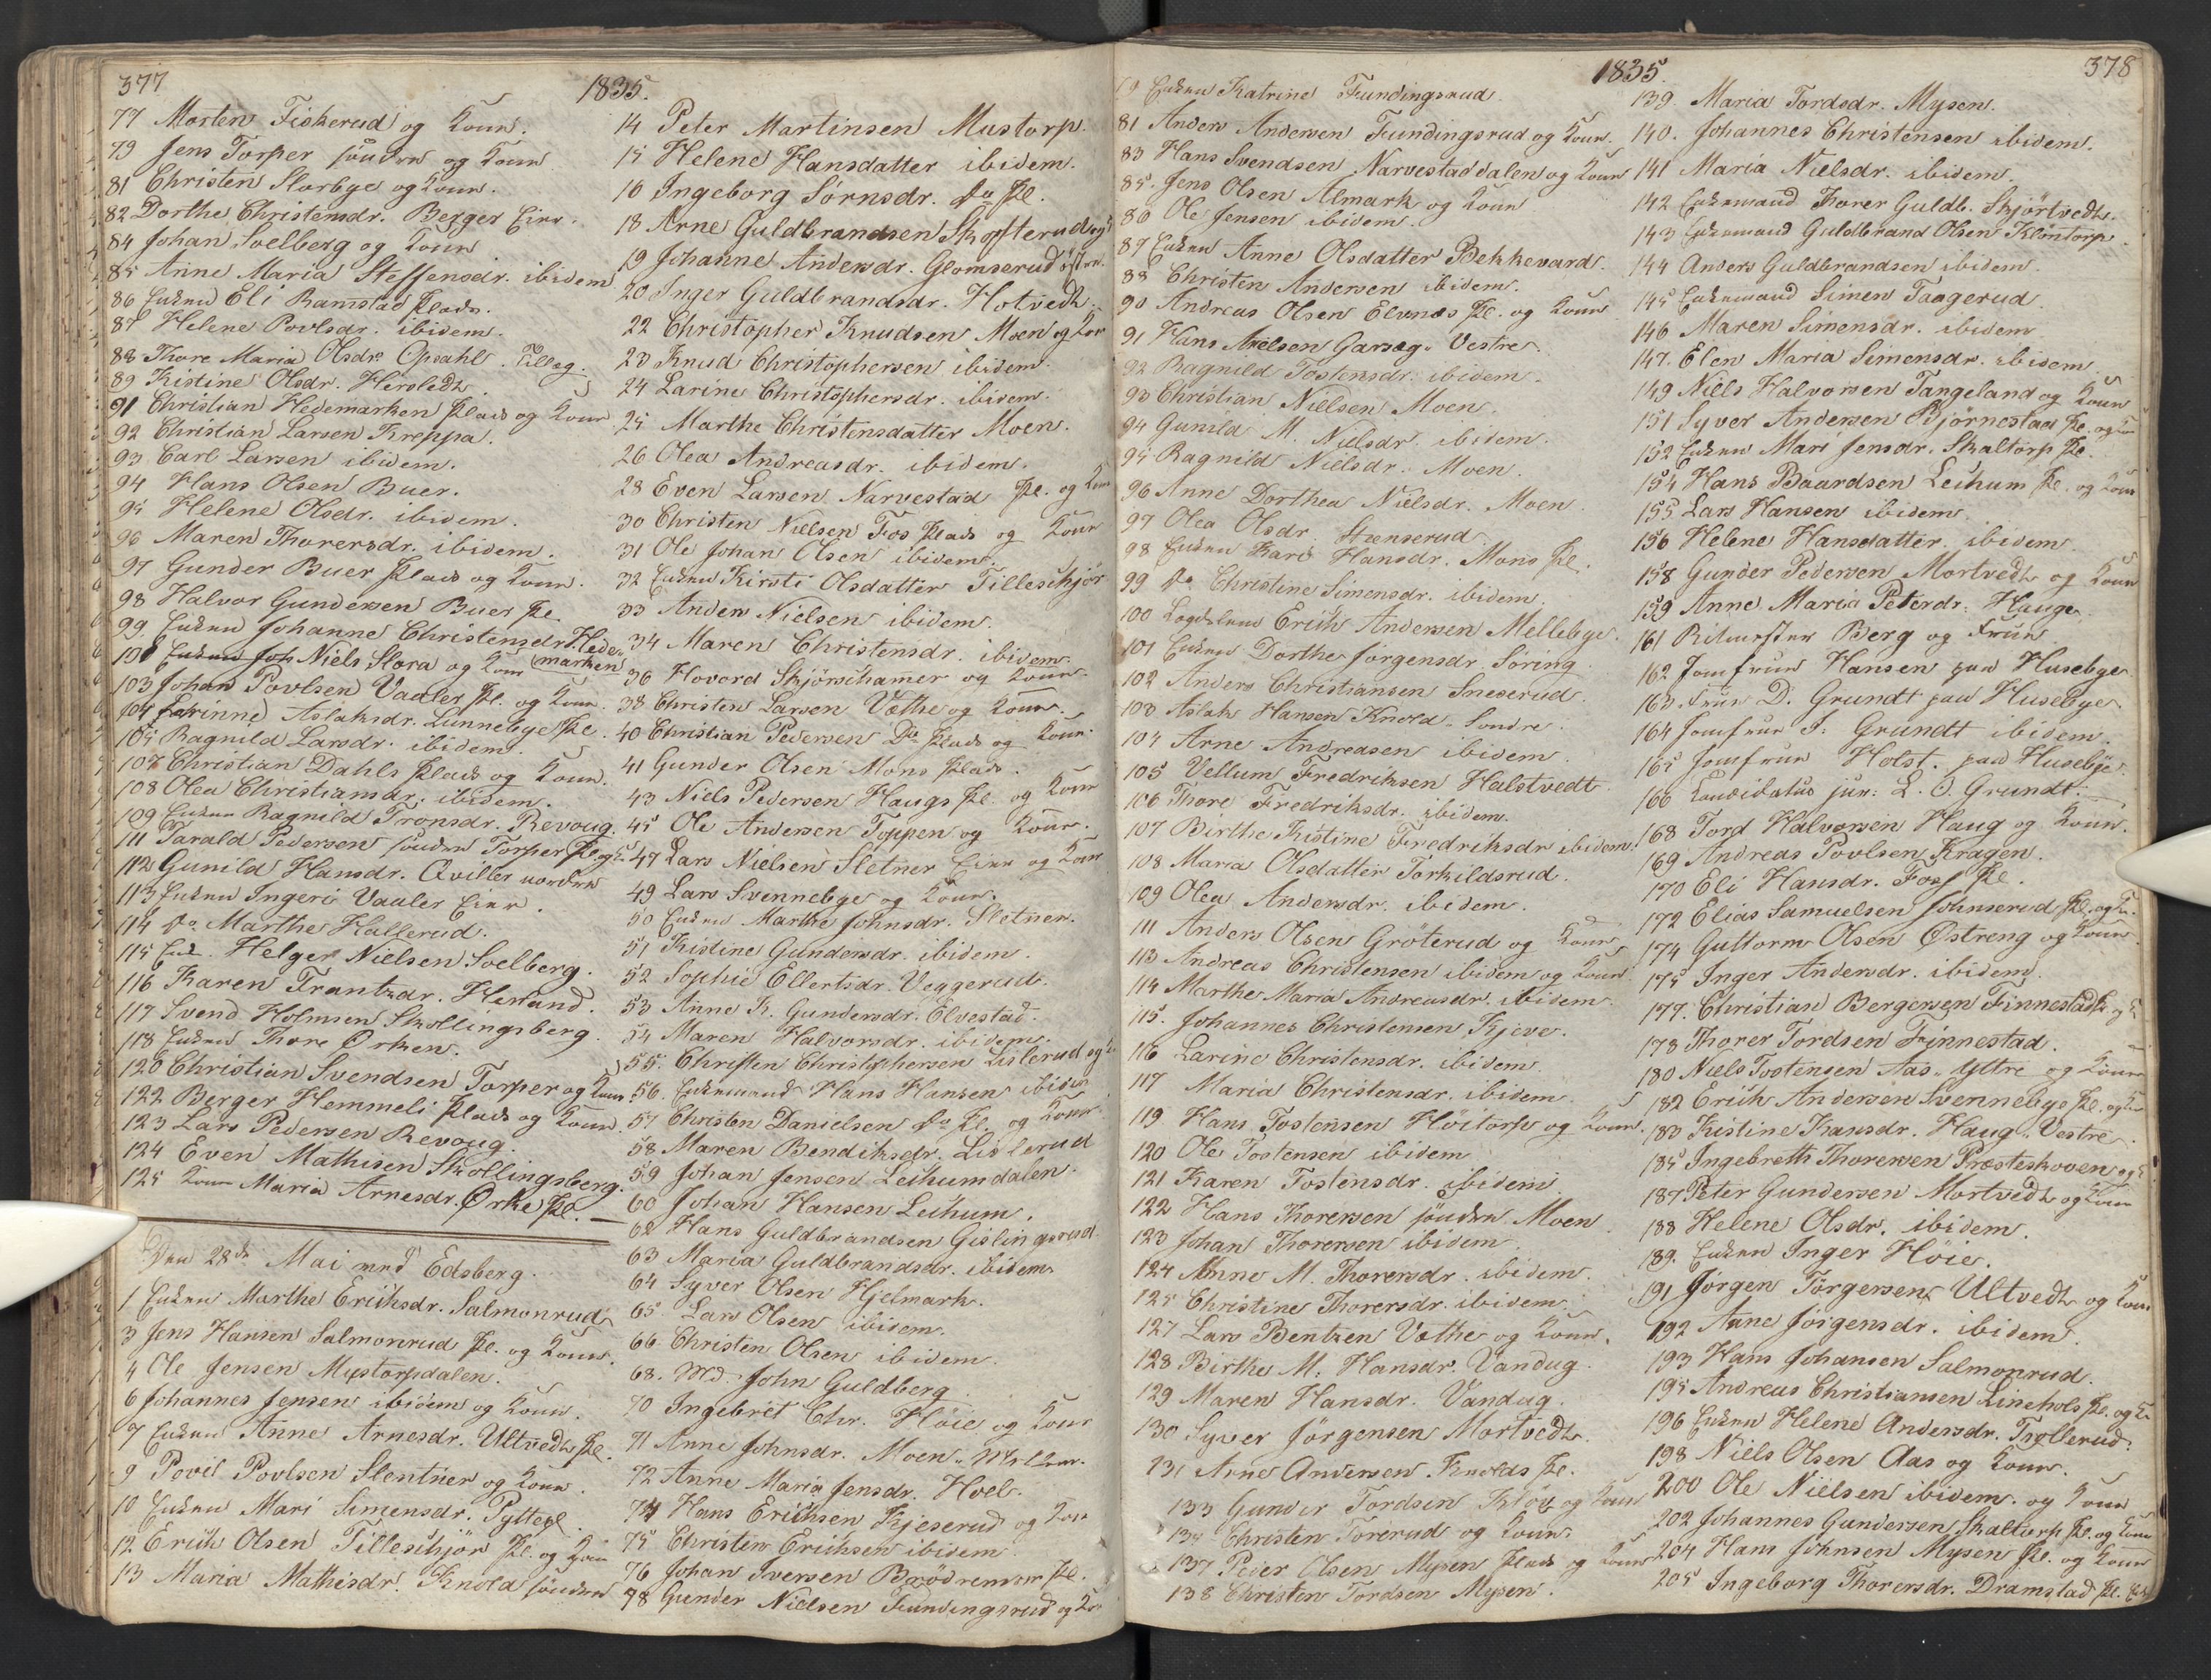 377
1835.
77 Morten Fiskerud og Kone.
79 Jens Torper søndre og Kone
81 Christen Slorbye og Kone.
82 Dorthe Christensdr. Berger Eier.
84 Johan Solberg og Kone
85 Anne Maria Steffensdr. ibidem
86 Enken Eli Ramstad Plads.
87 Helene Povlsdr. ibidem.
88 Thore Maria Olsdr. Opsahl. Tillæg.
89 Kistine Olsdr. Hersledt
91 Christian Hedemarken Plads og Kone
92 Christian Larsen Kreppa.
93 Carl Larsen ibidem.
94 Hans Olsen Buer.
95 Helene Olsdr. ibidem.
96 Maren Thorersdr. ibidem.
97 Gunder Buer Plads og Kone.
98 Halvor Gundersen Buer Pl.
99 Enken Johanne Christensdr. Hedemarken
101 Niels Slora og Kone
103 Johan Povlsen Vaaler Pl. og Kone.
104 Karinne Aslaksdr. Lunnebye Pl.
105 Ragnild Larsdr. ibidem.
107 Christian Dahls Plads og Kone.
108 Olea Christiansdr. ibidem.
109 Enken Ragnild Tronsdr. Revoug.
111 Tarald Pedersen søndre Torper Pl. og K
112 Gunild Hansdr. Qviller nordre
113 Enken Ingeri Vaaler Eier.
114 Do Marthe Hallerud.
115 Enk. Helger Nielsen Solberg.
116 Karen Frantzdr. Herland.
117 Svend Holmsen Skollingsberg
118 Enken Thore Ørken.
120 Christian Svendsen Torper og Kone
122 Berger Hemmeli Plads og Kone
123 Lars Pedersen Revoug
124 Even Mathisen Skollingsberg.
125 Kone Maria Arnesdr. Ørke Pl.
Den 28de Mai ved Edsberg.
1 Enken Marthe Eriksdr. Salmonrud
3 Jens Hansen Salmonrud Pl. og Kone.
4 Ole Jensen Mystorpdalen.
6 Johannes Jensen ibidem og Kone.
7 Enken Anne Arnesdr. Ultvedt Pl.
9 Povil Povlsen Slentner og Kone.
10 Enken Mari Simensdr. Pyttepl.
12 Erich Olsen Tilleschjör Pl. og Kone
13 Maria Mathisdr. Knold søndre
14 Peter Martinsen Mustorp.
15 Helene Hansdatter ibidem.
16 Ingeborg Sörnsdr. Do Pl.
18 Arne Guldbrandsen Skofterud og K
19 Johanne Andersdr. Glomserud østre.
20 Inger Guldbrandsdr. Hotvedt.
22 Christopher Knudsen Moen og Kone
23 Knud Christophersen ibidem.
24 Larine Christophersdr. ibidem.
25 Marthe Christensdatter Moen.
26 Olea Andreasdr. ibidem.
28 Even Larsen Narvestad Pl. og Kone
30 Christen Nielsen Fos Plads og Kone
31 Ole Johan Olsen ibidem.
32 Enken Kirsti Olsdatter Tilleschjör
33 Anders Nielsen ibidem.
34 Maren Christensdr. ibidem.
36 Hovord Skjörschamer og Kone.
38 Christen Larsen Vethe og Kone.
40 Christian Pedersen Do Plads og Kone.
41 Gunder Olsen Mons Plads.
43 Niels Pedersen Haugs Pl. og Kone
45 Ole Andersen Toppen og Kone.
47 Lars Nielsen Sletner Eier og Kone
49 Lars Svinnebye og Kone.
50 Enken Marthe Johnsdr. Sletner.
51 Kistine Gundersdr. ibidem.
52 Sophie Ellertsdr. Veggerud.
53 Anne K. Gundersdr. Elvestad.
54 Maren Halvorsdr. ibidem.
55. Christen Christophersen Lislerud og K
56. Enkemand Hans Hansen ibidem
57 Christen Danielsen Do Pl. og Kone
58 Maren Bendiksdr. Lislerud
59 Johan Jensen Leihumdalen.
60 Johan Hansen Leihum.
62 Hans Guldbrandsen Gislingsrud.
63 Maria Guldbrandsdr. ibidem
64 Syver Olsen Hjelmark.
65 Lars Olsen ibidem.
66 Christen Olsen ibidem.
68. Md. John Guldberg
70 Ingebret Chr. Höie og Kone
71 Anne Johnsdr. Moen
72 Anne Maria Jensdr. Hoel.
74 Hans Erichsen Kjeserud og Kone
75 Christen Erichsen ibidem.
76 Johan Iversen Brödremoer Pl.
78 Gunder Nielsen Fundingsrud og K
378
1835.
79 Enken Katrine Fundingsrud
81 Anders Andersen Fundingsrud og Kone.
83 Hans Svendsen Narvestaddalen og Kone
85. Jens Olsen Almark og Kone
86 Ole Jensen ibidem.
87 Enken Anne Olsdatter Bekkevard.
88 Christen Andersen ibidem.
90 Andreas Olsen Elvnæs Pl. og Kone
91 Hans Nielsen Garseg. Vestre.
92 Ragnild Tostensdr. ibidem.
93 Christian Nielsen Moen.
94 Gunild M. Nielsdr. ibidem.
95 Ragnild Nielsdr. Moen.
96 Anne Dorthea Nielsdr. Moen
97 Olea Olsdr. Stenserud
98 Enken Kari Hansdr. Mons Pl.
99 Do Christine Simensdr. ibidem.
100 Erich Andersen Mellebye.
101 Enken Dorthe Jørgensdr. Söring
102 Anders Christiansen Sneserud
103 Aslak Hansen Knold. Søndre.
104 Arne Andreasen ibidem.
105 Vellum Fredriksen Halstvedt
106 Thore Fredriksdr. ibidem.
107 Birthe Kistine Fredriksdr ibidem.
108 Maria Olsdatter Torkildsrud.
109 Olea Andersdr. ibidem.
111 Anders Olsen Gröterud og Kone
113 Andreas Christensen ibidem og Kone
114 Marthe Maria Andreasdr. ibidem.
115. Johannes Christensen Kjeve.
116 Larine Christensdr. ibidem.
117 Maria Christensdr. ibidem
119 Hans Tostensen Höitorp og Kone.
120 Ole Tostensen ibidem
121 Karen Tostensdr. ibidem
122 Hans Thorersen søndre Moen
123 Johan Thorersen ibidem.
124 Anne M. Thorersdr. ibidem.
125 Christine Thorersdr. ibidem.
127 Lars Bentzen Vothe og Kone.
128 Birthe M. Hansdr. Vandug.
129 Maren Hansdr. Vandug.
130 Syver Jörgensen Mortvedt.
131 Arne Andersen. Knolds Pl.
133 Gunder Tordsen Klöv og Kone
135 Christen Torerud og Kone.
137 Peder Olsen Mysen Plads og Kone
138 Christen Tordsen Mysen.
139. Maria Tordsdr. Mysen.
140. Johannes Christensen ibidem.
141 Maria Nielsdr. ibidem.
142 Enkemand Thorer Guldb. Skjörtvedt.
143 Enkemand Guldbrand Olsen Klöntorp.
144 Anders Guldbrandsen ibidem.
145 Enkemand Simen Taagerud
146 Maren Simensdr. ibidem
147. Elen Maria Simensdr. ibidem
149 Niels Halvorsen Tangeland og Kone
151 Syver Andersen Bjørnestad Pl. og Kone
152 Enken Mari Jensdr. Skaltorp Pl.
154 Hans Baardsen Leihum Pl. og Kone
155 Lars Hansen ibidem.
156 Helene Hansdatter. ibidem
158 Gunder Pedersen Mortvedt og Kone
159 Anne Maria Petersdr. Hauge
161 Ritmester Berg og Frue
162 Jomfrue Hansen paa Husebye
163. Frue D. Grundt paa Husebye.
164 Jomfrue I. Grundt ibidem.
165 Jomfrue Holst. paa Husebye
166 Candidatus jur: L. O. Grundt.
168 Tord Halvorsen Haug og Kone.
169 Andreas Povlsen Kragen.
170 Eli Hansdr. Foss Pl.
172 Elias Samuelsen Johnserud Pl. og K.
174 Guttorm Olsen Østreng og Kone.
175 Inger Andersdr. ibidem.
177. Christian Bergersen Finnestad Pl. og K
178 Thorer Tordsen Finnestad.
180 Niels Tostensen Aas. Yttre og Kone
182 Erich Andersen Svennebye Pl. og Kone
183 Kistine Hansdr. Haug. Vestre.
185 Ingebreth Thorersen Præsteskoven og K
187 Peter Gundersen Mortvedt og Kone
188 Helene Olsdr. ibidem.
189. Enken Inger Höie.
191 Jørgen Törgersen Ultvedt og Kone
192 Anne Jörgensdr. ibidem.
193 Hans Johansen Salmonrud.
195 Andreas Christiansen Linehols Pl. og K
196 Enken Helene Andersdr. Trollerud.
198 Niels Olsen Aas og Kone.
200 Ole Nielsen ibidem. og Kone
202 Johannes Gundersen Skaltorp Pl. og Kone
204 Hans Johnsen Mysen Pl. og Kone
205 Ingeborg Thorersdr. Dramstad Pl.